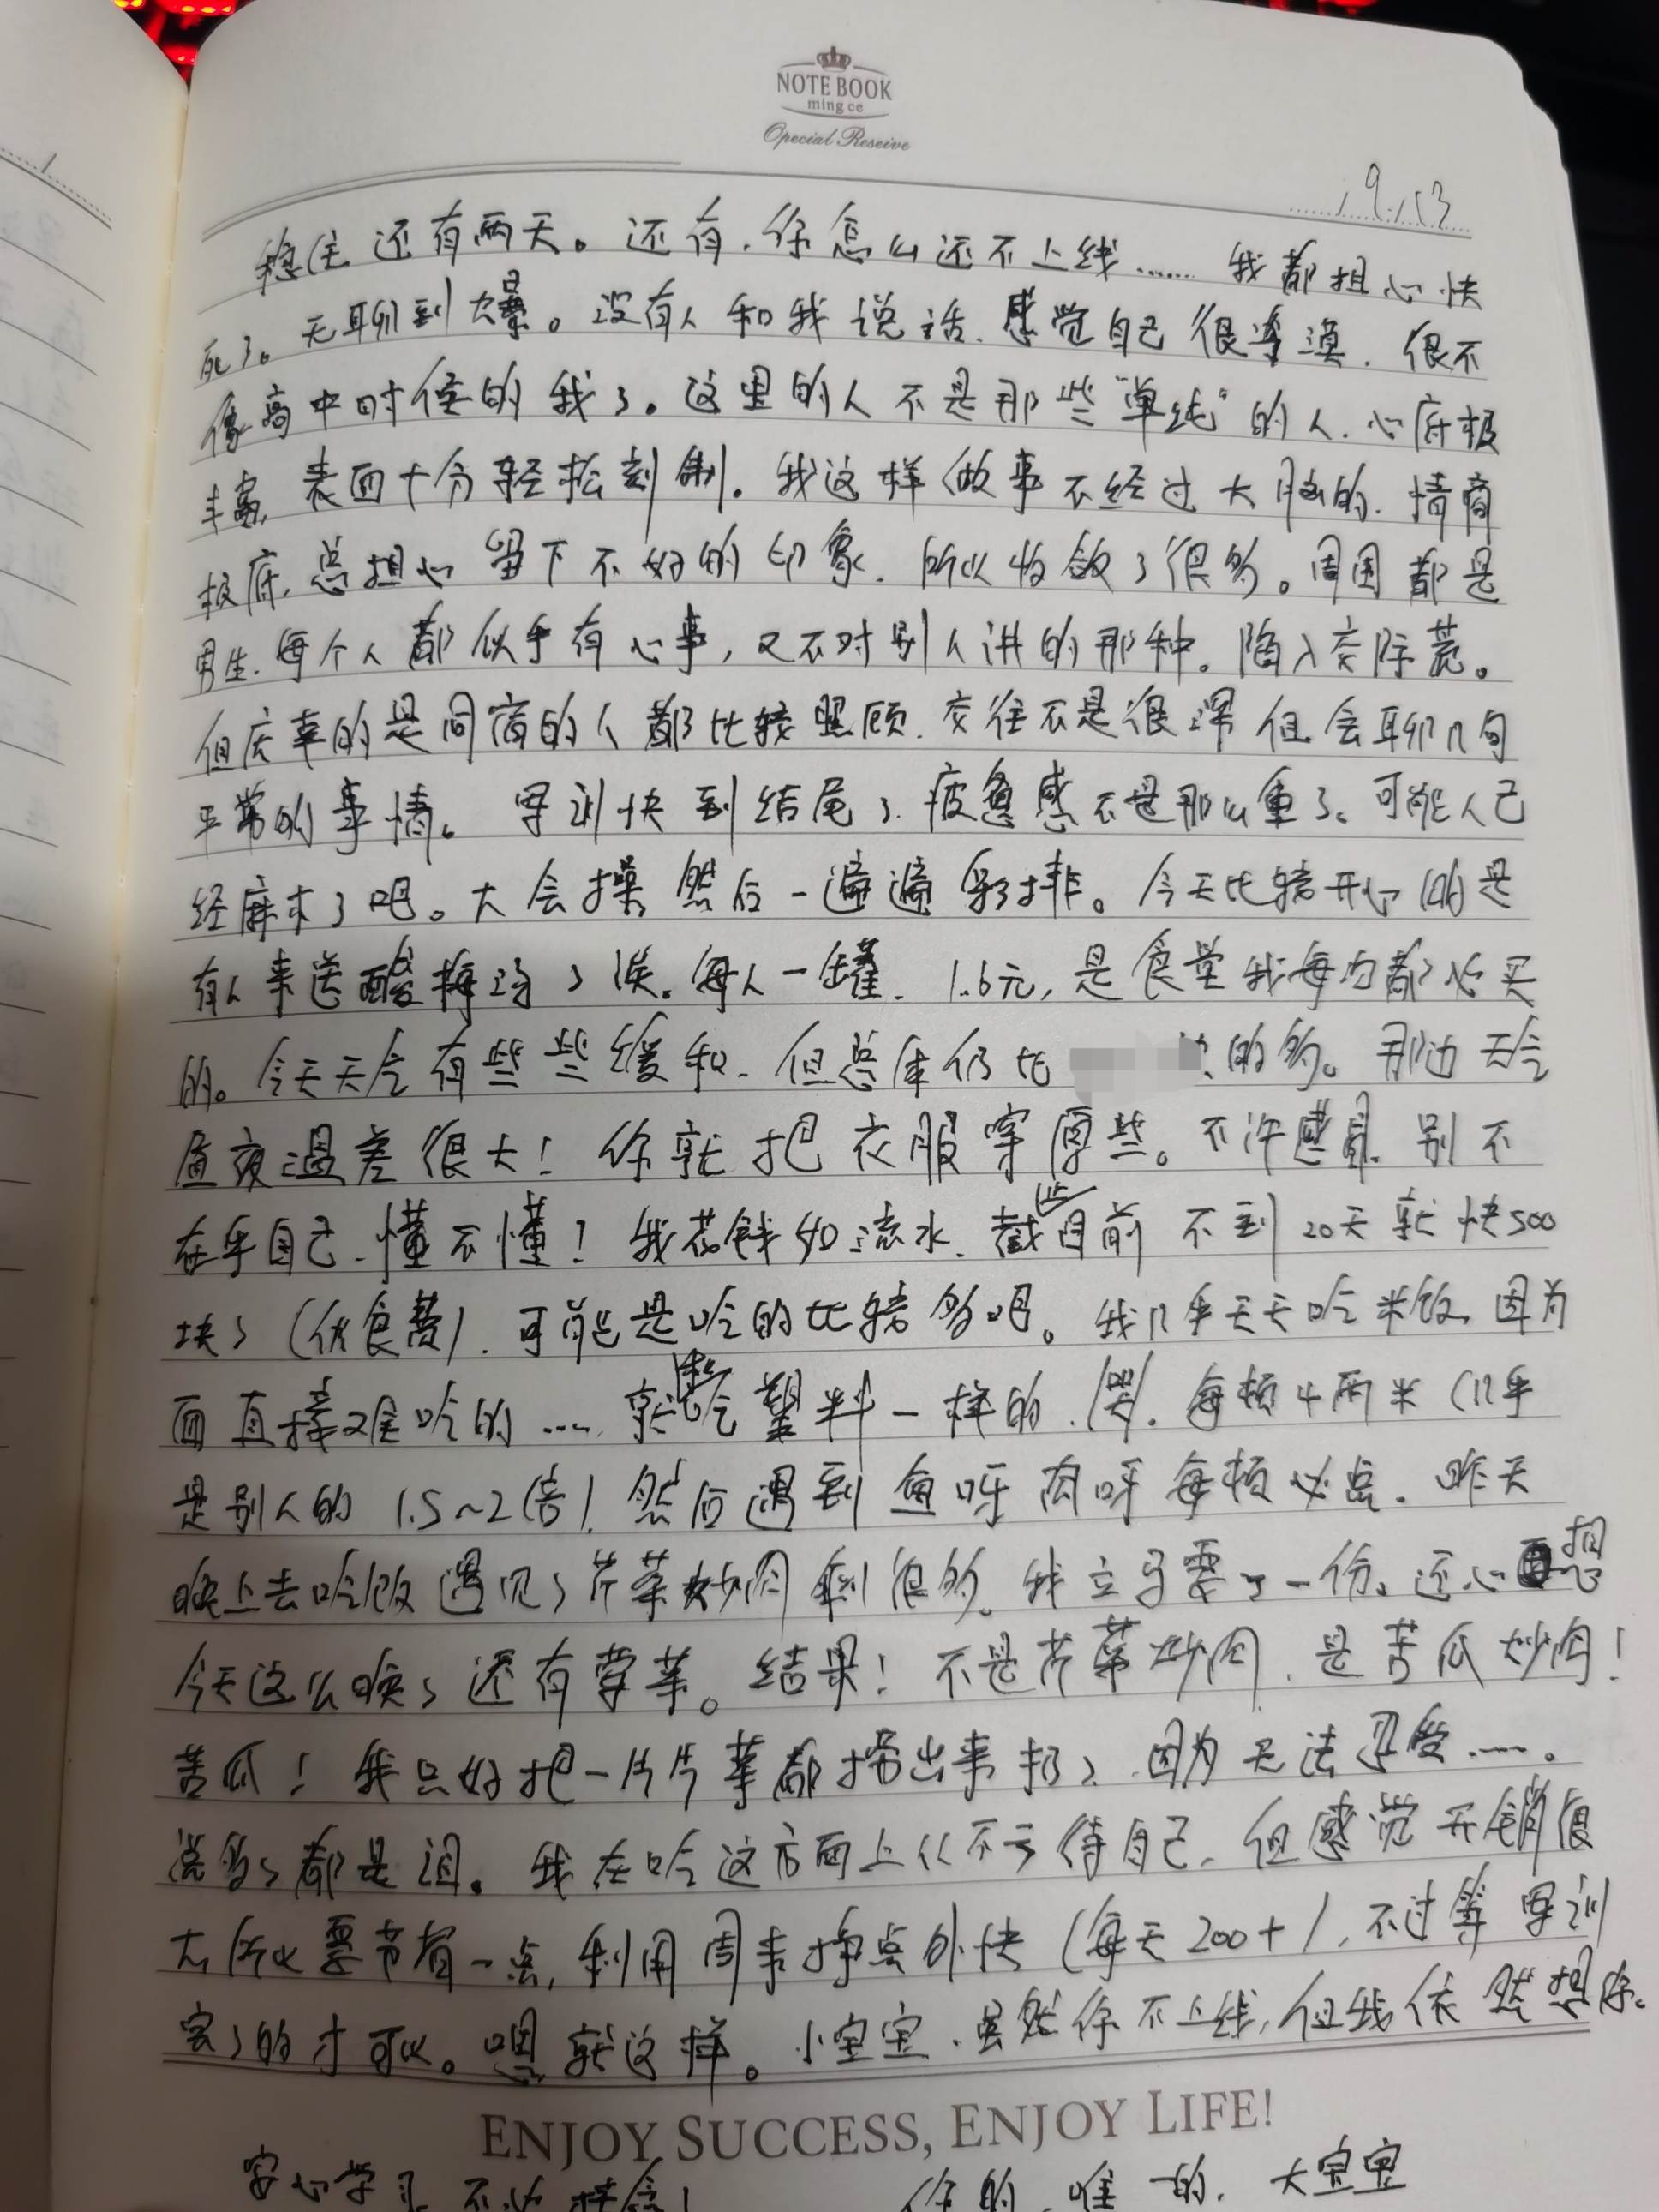 NOTE BOOK
ming ce
Special Reseive
19.13
稳住 还有两天。还有,你怎么还不上线…… 我都担心快
死了。无聊到爆。没有人和我说话,感觉自己很冷漠,很不
像高中时候的我了。这里的人不是那些"单纯"的人,心底极
丰富,表面十分轻松刻制。我这样做事不经过大脑的,情商
极底,总担心留下不好的印象,所以收敛了很多。周围都是
男生,每个人都似乎有心事,又不对别人讲的那种。陷入交际荒。
但庆幸的是同窗的人都比较照顾,交往不是很深但会聊几句
平常的事情。军训快到结尾了,疲惫感不是那么重了。可能人已
经麻木了吧。大会操,然后一遍遍彩排。今天比较开心的是
有人来送酸梅汤了诶。每人一罐,1.6元,是食堂我每勺都必买
的。今天天气有些些缓和,但总体仍比 的多。那边天气
昼夜温差很大!你就把衣服穿厚些。不许感冒,别不
在乎自己,懂不懂!我花钱如流水,截止目前不到20天就快500
块了(伙食费),可能是吃的比较多吧。我几乎天天吃米饭,因为
面直接难吃的……就整个塑料一样的,(哭)。每顿4两米(几乎
是别人的1.5~2倍),然后遇到鱼呀肉呀每顿必点。昨天
晚上去吃饭遇见了芹菜炒肉剩很多。我立马要了一份。还心想
今天这么晚了还有荤菜。结果!不是芹菜炒肉,是苦瓜炒肉!
苦瓜!我只好把一片片菜都捞出来扔了,因为无法忍受……。
说多了都是泪。我在吃这方面上从不亏待自己,但感觉开销很
大所以要节省一点,利用周末挣点外快(每天200+),不过等军训
完了的才可以。嗯就这样。小宝宝,虽然你不上线,但我依然想你。
ENJOY SUCCESS, ENJOY LIFE!
安心学习,不必挂念! 你的,唯一的,大宝宝